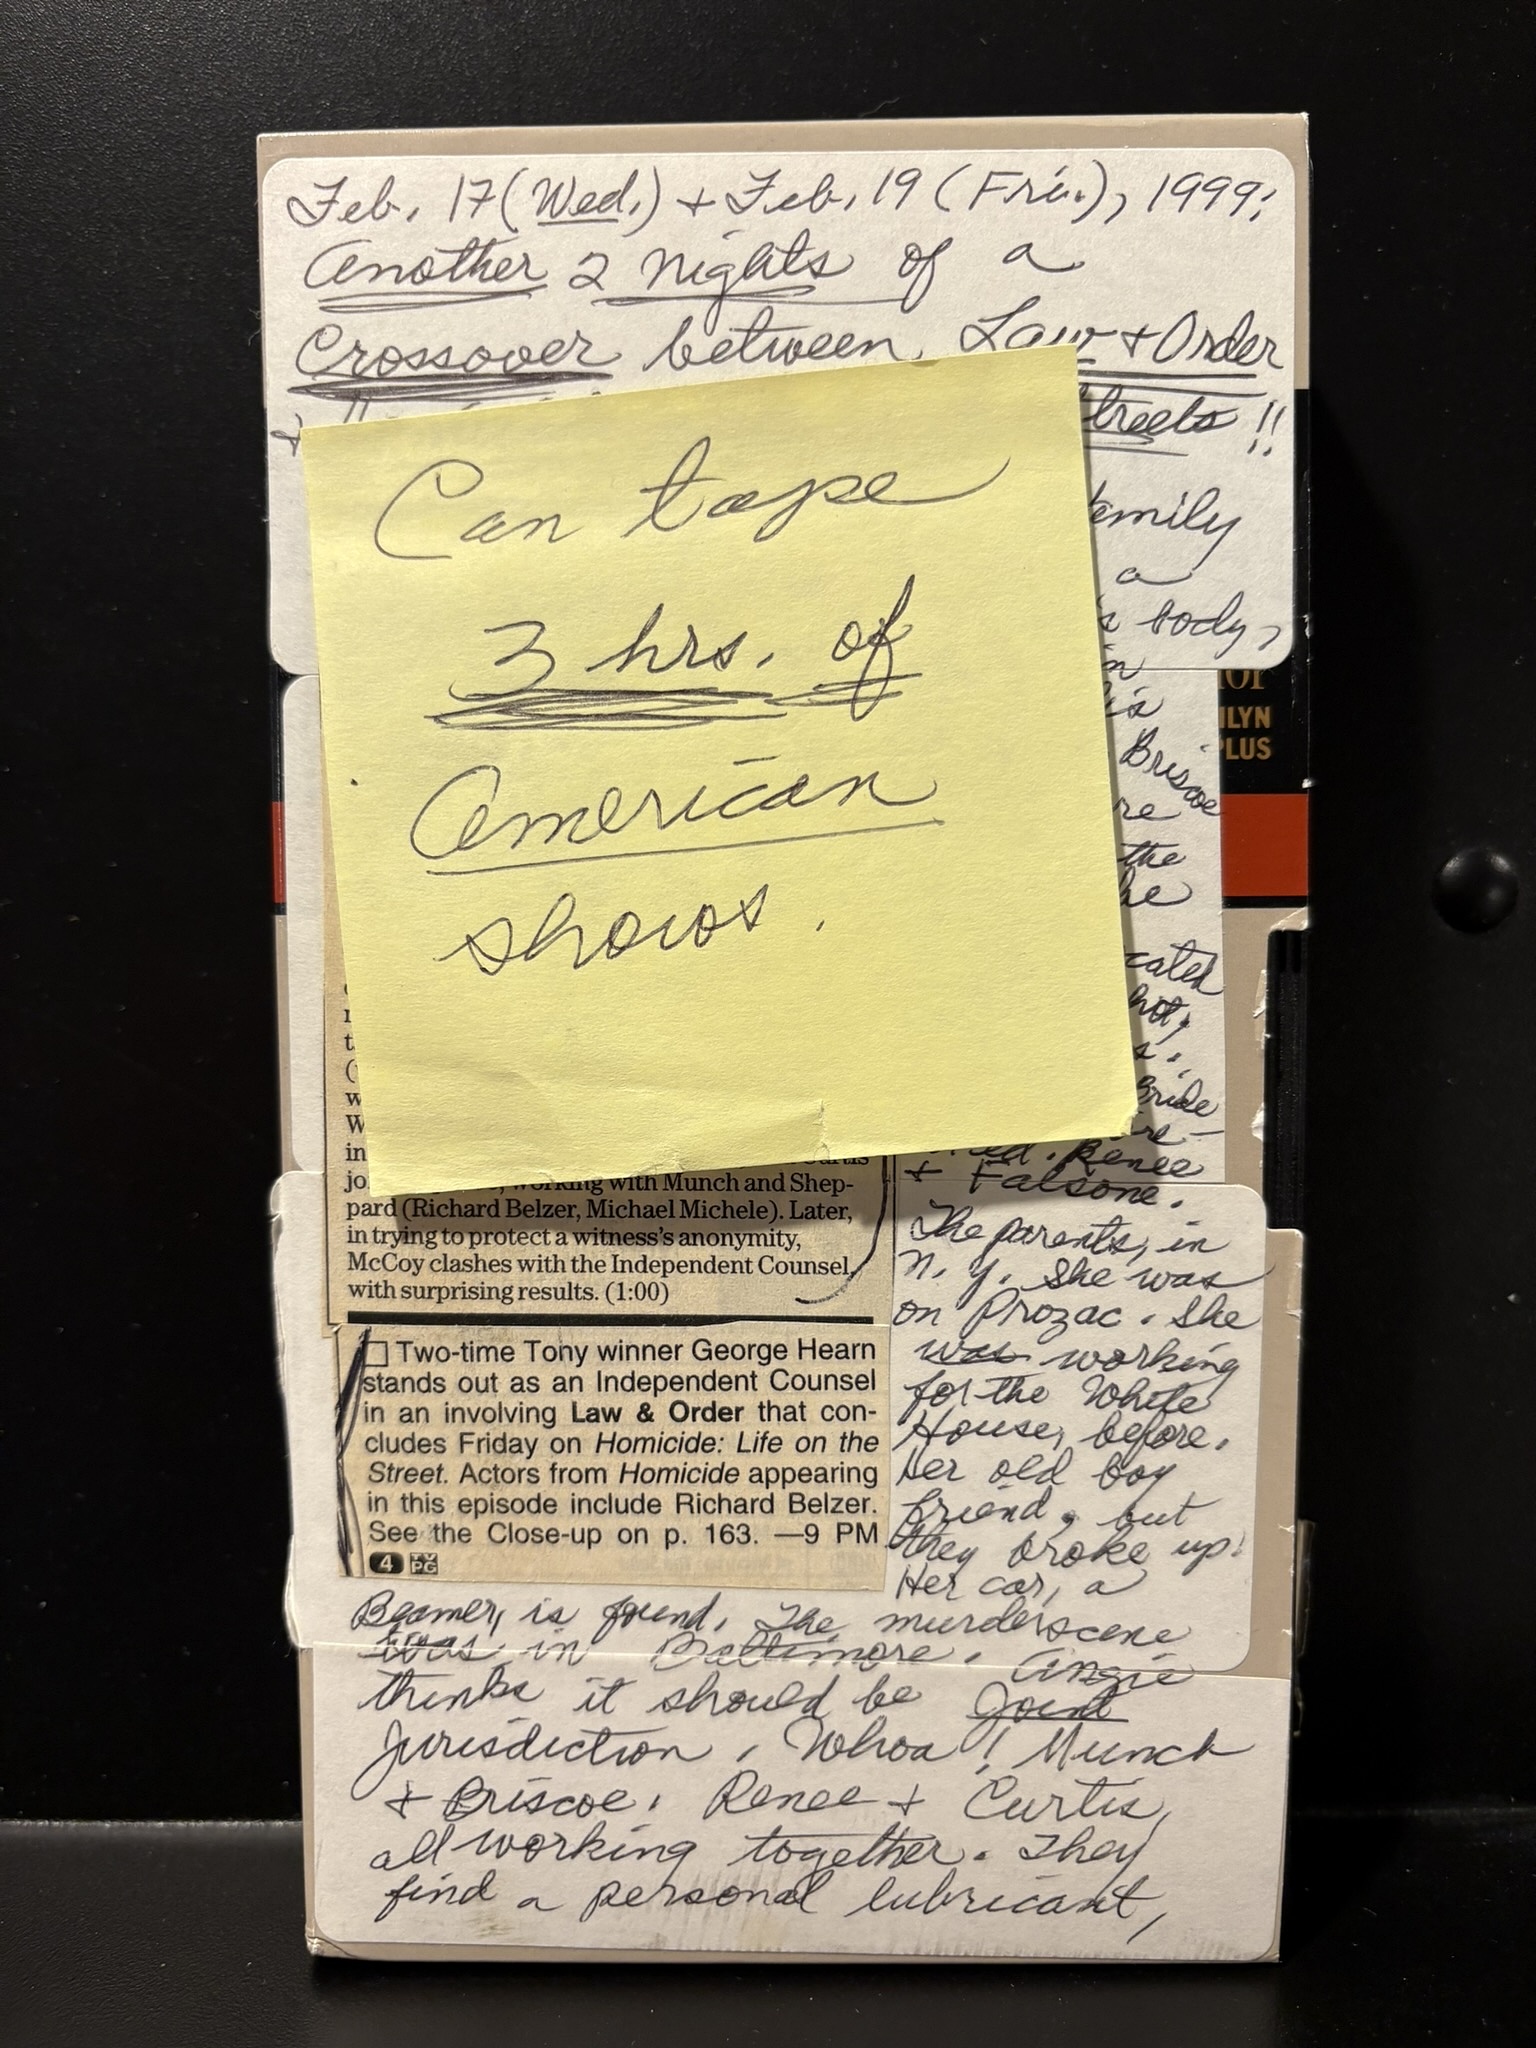 Feb. 17 (Wed.) + Feb. 19 (Fri.), 1999:
Another 2 nights of a
Crossover between Law + Order
+ Streets!!
Can tape
3 hrs. of
American
shows.
family
a
body,
in
Briscoe
re
the
he
cated
hot,
Bride
re-
Renee
+ Falsone.
The parents, in
N. Y. She was
on Prozac. She
was working
for the White
House, before.
Her old boy
friend, but
they broke up.
Her car, a
Beamer, is found. The murder scene
was in Baltimore. Angie
thinks it should be Joint
Jurisdiction. Whoa! Munch
+ Briscoe. Renee + Curtis,
all working together. They
find a personal lubricant,
W
in
jo working with Munch and Shep-
pard (Richard Belzer, Michael Michele). Later,
in trying to protect a witness's anonymity,
McCoy clashes with the Independent Counsel,
with surprising results. (1:00)
Two-time Tony winner George Hearn
stands out as an Independent Counsel
in an involving Law & Order that con-
cludes Friday on Homicide: Life on the
Street. Actors from Homicide appearing
in this episode include Richard Belzer.
See the Close-up on p. 163. —9 PM
4 TV PG
ILYN
PLUS